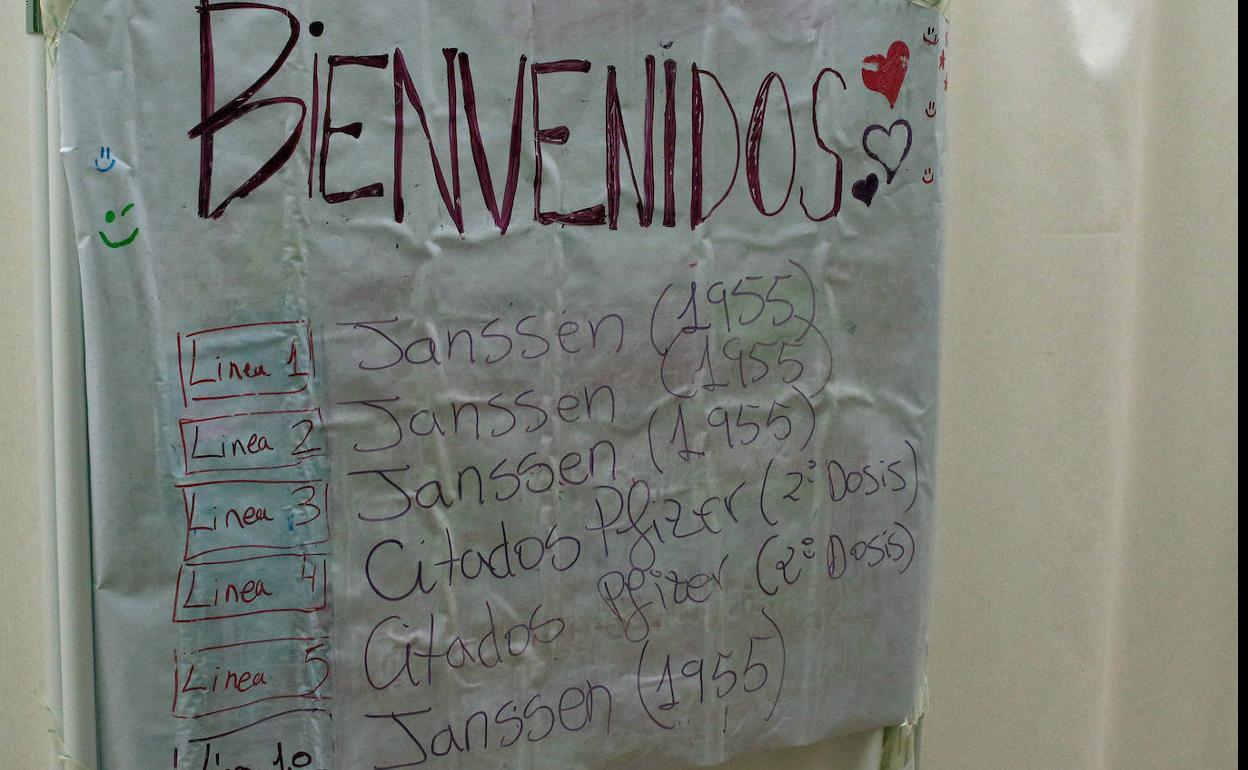 BiENVENiDOS
Linea 1 Janssen (1955)
Linea 2 Janssen (1955)
Linea 3 Janssen (1955)
Linea 4 Citados Pfizer (2º Dosis)
Linea 5 Citados Pfizer (2º Dosis)
Janssen (1955)